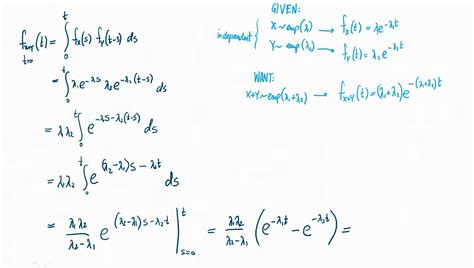 f_{X+Y}(t) = ∫_0^t f_X(s) f_Y(t-s) ds
t>0
= ∫_0^t λ_1 e^{-λ_1 s} λ_2 e^{-λ_2(t-s)} ds
= λ_1 λ_2 ∫_0^t e^{-λ_1 s - λ_2(t-s)} ds
= λ_1 λ_2 ∫_0^t e^{(λ_2-λ_1)s - λ_2 t} ds
= \frac{λ_1 λ_2}{λ_2-λ_1} e^{(λ_2-λ_1)s - λ_2 t} |_{s=0}^t = \frac{λ_1 λ_2}{λ_2-λ_1} (e^{-λ_1 t} - e^{-λ_2 t}) =
GIVEN:
independent { X~exp(λ_1) → f_X(t) = λ_1 e^{-λ_1 t}
Y~exp(λ_2) → f_Y(t) = λ_2 e^{-λ_2 t}
WANT:
X+Y~exp(λ_1+λ_2) → f_{X+Y}(t) = (λ_1+λ_2) e^{-(λ_1+λ_2)t}